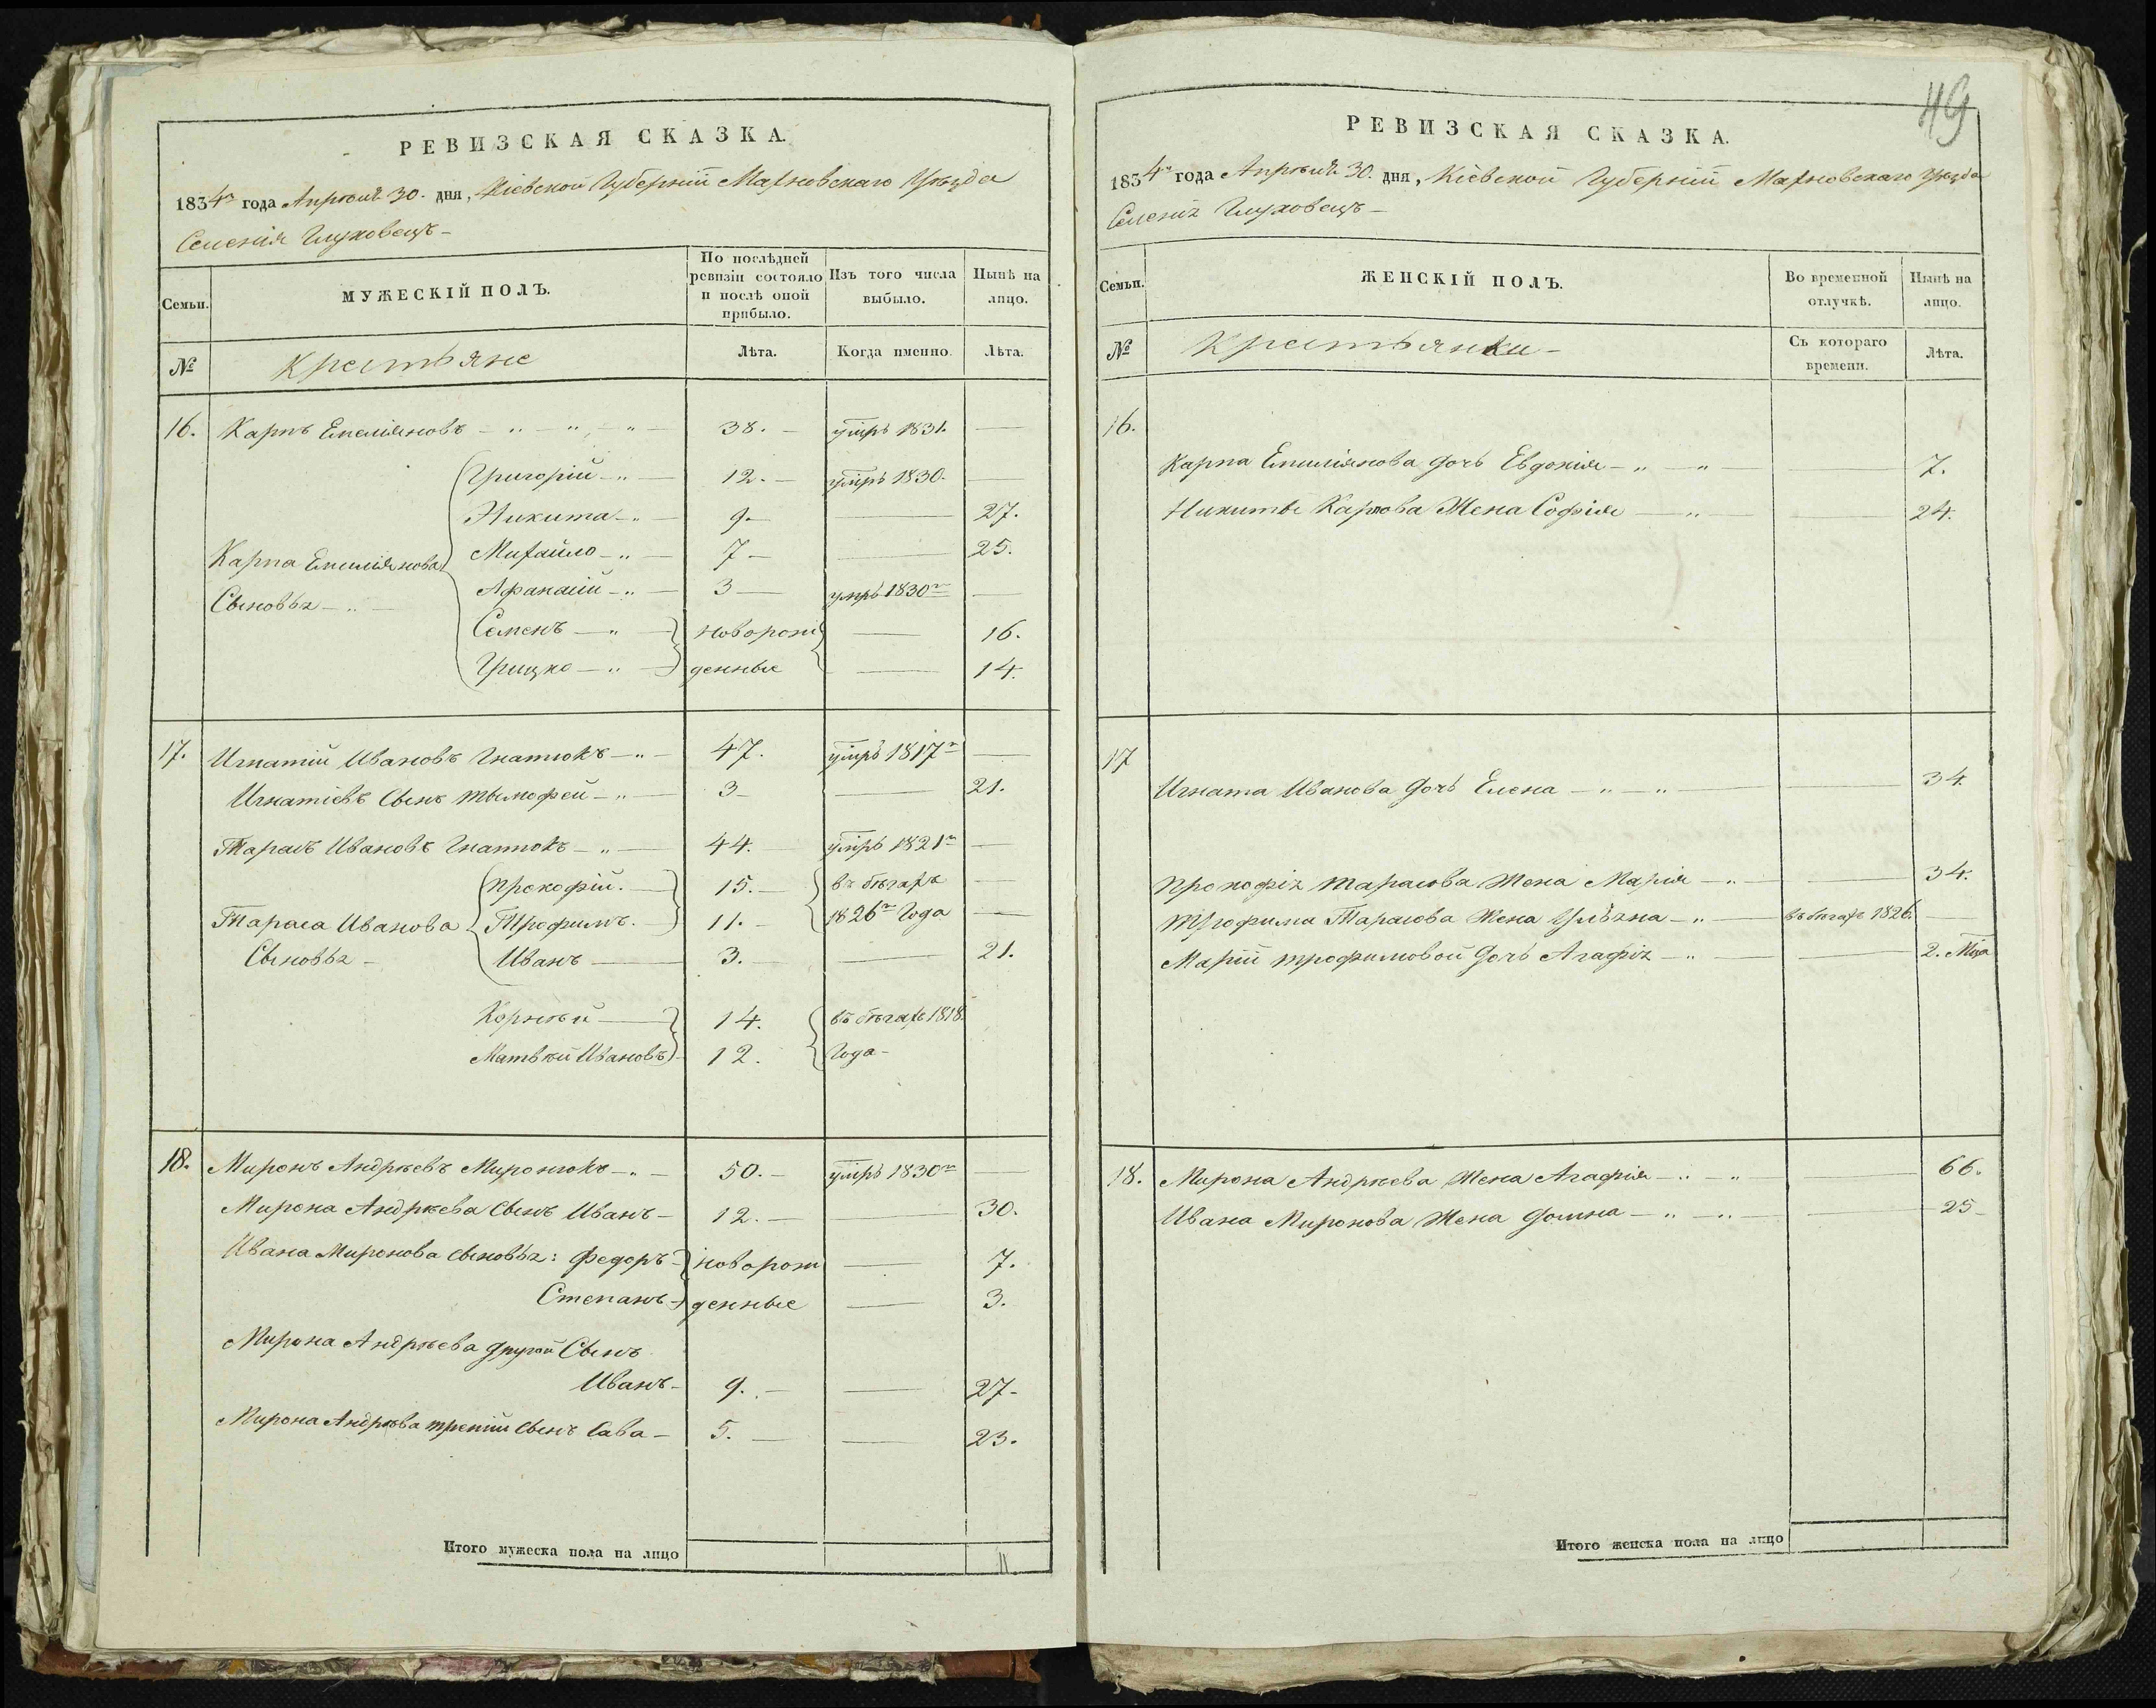 РЕВИЗСКАЯ СКАЗКА.
1834го года Апрѣля 30. дня, Кіевской Губерніи Махновскаго Уѣзда
Селенія Глуховецъ –
Семьи.
МУЖЕСКІЙ ПОЛЪ.
По послѣдней ревизіи состояло и послѣ оной прибыло.
Изъ того числа выбыло.
Нынѣ на лицо.
№ Крестьяне Лѣта. Когда именно. Лѣта.
16. Карпъ Емеліяновъ – „ – „ – „ – 38. – умре 1831. –
Григорій – „ – 12. – умре 1830. –
Никита – „ – 9. – – 27.
Михайло – „ – 7 – – 25.
Карпа Емеліянова
Афанасій – „ – 3 – умре 1830го –
Сыновья – „ –
Семенъ – „ – новорож – 16.
Грицко – „ – денные – 14.
17. Игнатій Ивановъ Гнатюкъ – „ – 47. умре 1817го –
Игнатіевъ Сынъ Тымофей – „ – 3 – – 21.
Тарасъ Ивановъ Гнатюкъ – „ – 44. умре 1821го –
Прокофій. – 15. – въ бѣгахъ –
Тараса Иванова Трофимъ. – 11. – 1826го Года –
Сыновья – Иванъ – 3. – – 21.
Корнѣй – 14. въ бѣгахъ 1818.
Матвѣй Ивановъ – 12. Года –
18. Миронъ Андрѣевъ Миронюкъ – „ – 50. – умре 1830го –
Мирона Андрѣева Сынъ Иванъ – 12. – – 30.
Ивана Миронова Сыновья: Федоръ – новорож – 7.
Степанъ – денные – 3.
Мирона Андрѣева другой Сынъ
Иванъ – 9. – – 27 –
Мирона Андрѣева третій Сынъ Сава – 5. – – 23.
Итого мужеска пола на лицо 11.
49
РЕВИЗСКАЯ СКАЗКА.
1834го года Апрѣля 30. дня, Кіевской Губерніи Махновскаго Уѣзда
Селенія Глуховецъ –
Семьи.
ЖЕНСКІЙ ПОЛЪ.
Во временной отлучкѣ.
Нынѣ на лицо.
№ Крестьянки – Съ котораго времени. Лѣта.
16.
Карпа Емеліянова дочь Евдокія – „ – „ – 7.
Никиты Карпова Жена Софія – „ – 24.
17
Игната Иванова дочь Елена – „ – „ – 34.
Прокофія Тарасова Жена Марія – „ – 34.
Трофима Тарасова Жена Уліяна – „ – въ бѣгахъ 1826. –
Маріи Трофимовой дочь Агафія – „ – 2. Мца
18. Мирона Андрѣева Жена Агафія – „ – „ – 66.
Ивана Миронова Жена Домна – „ – „ – 25 –
Итого женска пола на лицо